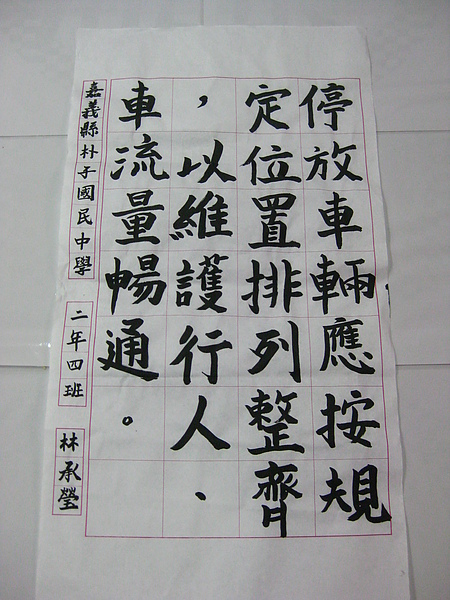 停放車輛應按規
定位置排列整齊
，以維護行人、
車流量暢通。
嘉義縣朴子國民中學 二年四班 林承瑩